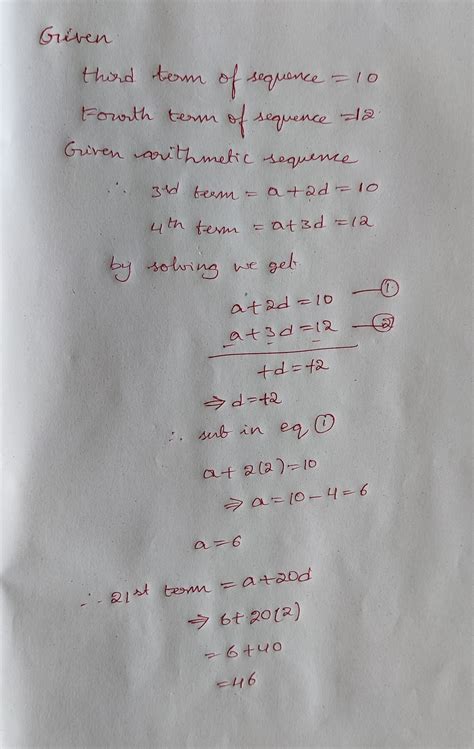 Given
third term of sequence = 10
Fourth term of sequence = 12
Given arithmetic sequence
∴ 3rd term = a+2d = 10
4th term = a+3d = 12
by solving we get
a+2d = 10 — ①
a+3d = 12 — ②
+d = +2
⇒ d = +2
∴ sub in eq ①
a+2(2) = 10
⇒ a = 10 - 4 = 6
a = 6
∴ 21st term = a+20d
⇒ 6+20(2)
= 6+40
= 46